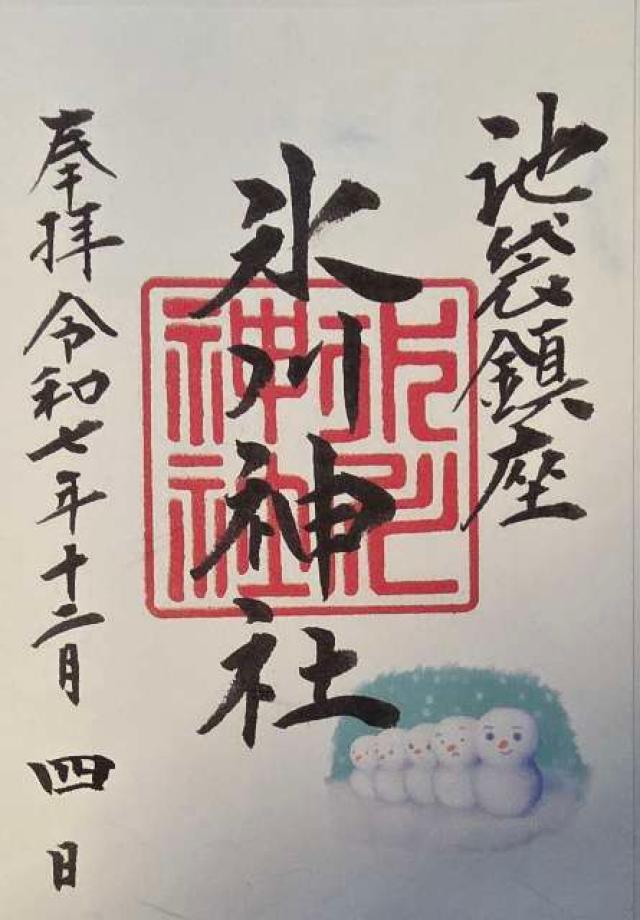 池袋鎮座
氷川神社
氷川神社
奉拝 令和七年十二月 四日